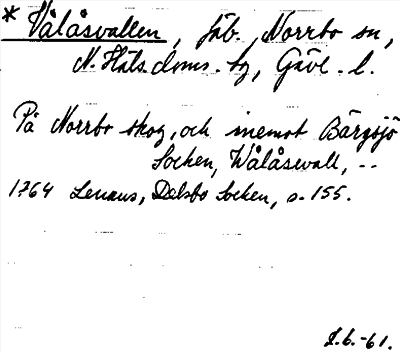 * Vålåsvallen, fäb. Norrbo sn,
N. Häls. doms. tg, Gävl. l.
På Norrbo skog, och inemot Bärgsjö
Socken, Wålåswall, --
1764 Lenæus, Delsbo Socken, s. 155.
2.6.-61.